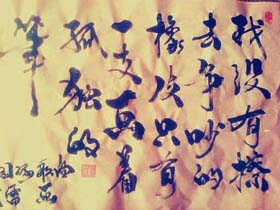 我没有擦
去争吵的
橡皮只有
一支画着
孤独的
筆